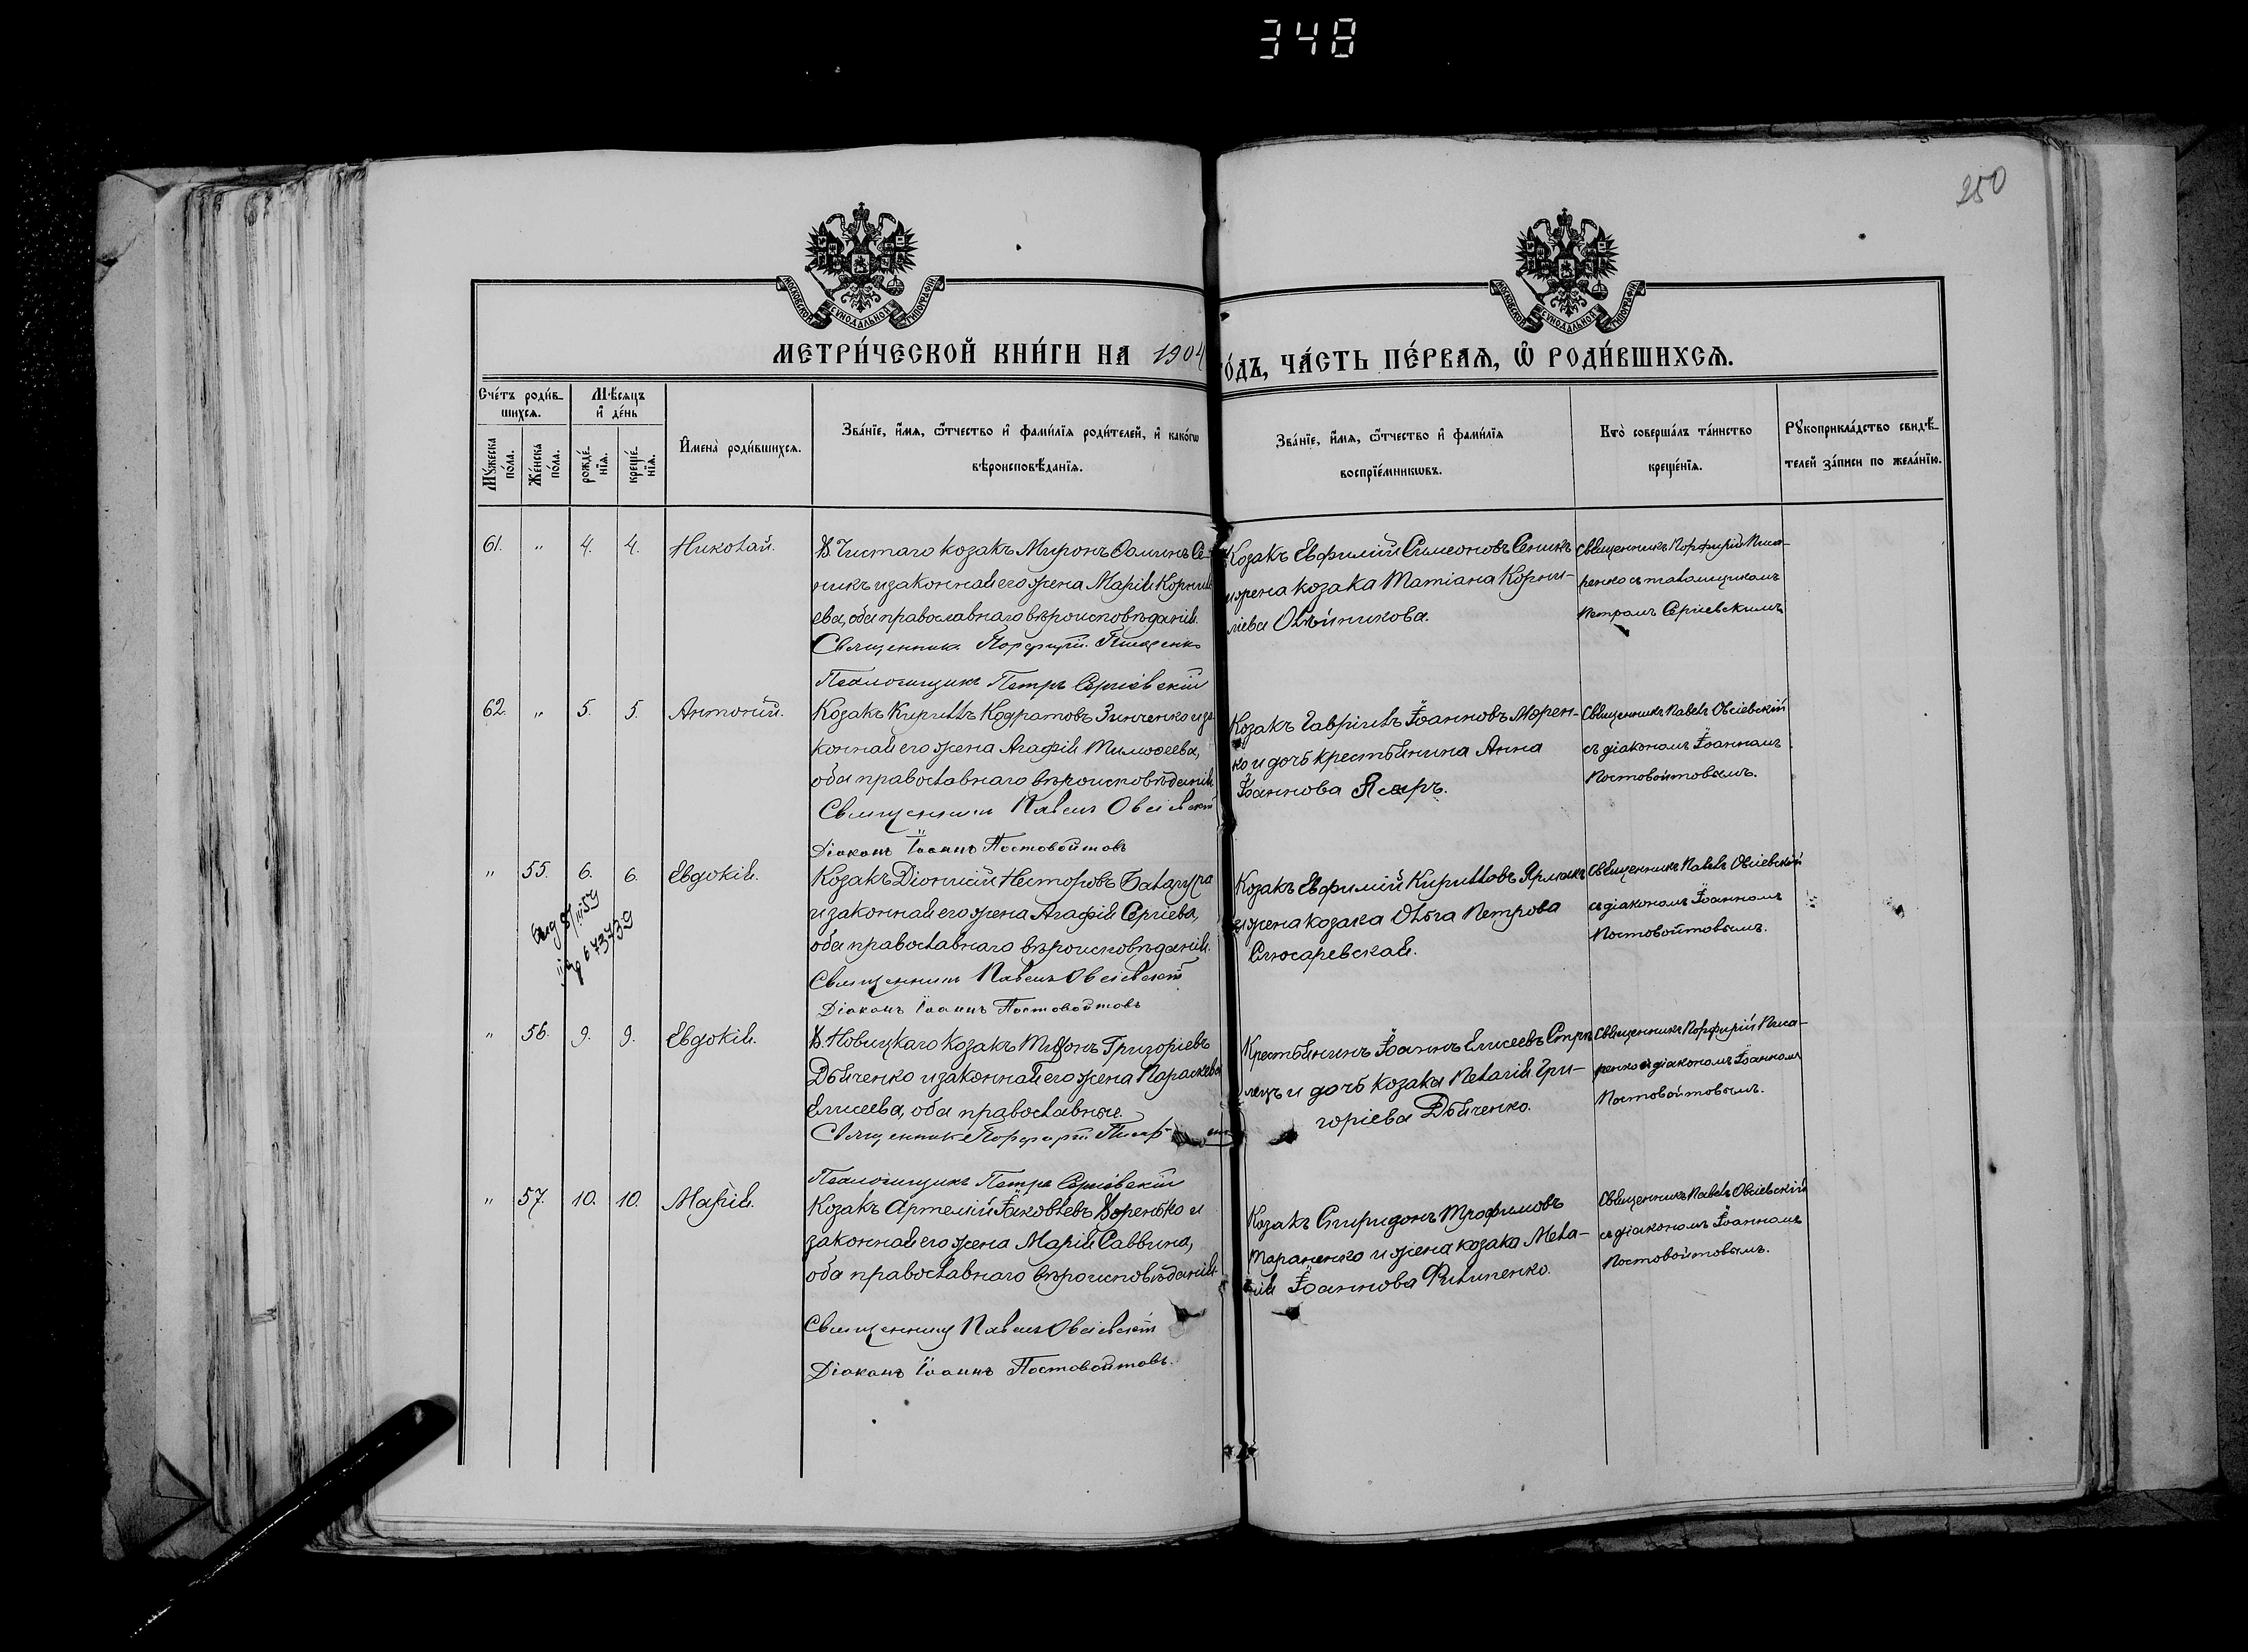 348
250
МОСКОВСКОЙ СѴНОДАЛЬНОЙ ТИПОГРАФІИ
МОСКОВСКОЙ СѴНОДАЛЬНОЙ ТИПОГРАФІИ
МЕТРИ́ЧЕСКОЙ КНИ́ГИ НА 1904
ГО́ДЪ, ЧА́СТЬ ПЕ́РВАѦ, Ѿ РОДИ́ВШИХСѦ.
Сче́тъ роди́в-
шихсѧ.
Мѣ́сѧцъ
и҆ де́нь
Мꙋ́жеска по́ла.
Же́нска по́ла.
рожде́-
нїѧ.
креще́-
нїѧ.
И҆мена̀ роди́вшихсѧ.
Зва́нїе, и҆́мѧ, ѻ҆́тчество и҆ фами́лїѧ роди́телей, и҆ како́гѡ
вѣроисповѣ́данїѧ.
Зва́нїе, и҆́мѧ, ѻ҆́тчество и҆ фами́лїѧ
воспрїе́мникѡвъ.
Кто̀ соверша́лъ та́инство
креще́нїѧ.
Рꙋкоприкла́дство свидѣ́-
телей за́писи по жела́нїю.
61. " 4. 4. Николай.
Х. Чистаго козакъ Миронъ Ѳоминъ Се-
никъ и законная его жена Марія Корнил-
ева, оба православнаго вѣроисповѣданія.
Священникъ Порфирій Писаренко
Псаломщикъ Петръ Сергіевскій
Козакъ Евфимій Симеоновъ Сеникъ
и жена козака Татіана Корни-
ліева Олѣйникова.
Священникъ Порфирій Писа-
ренко съ псаломщикомъ
Петромъ Сергіевскимъ
62. " 5. 5. Антоній.
Козакъ Кириллъ Кодратовъ Зинченко и за-
конная его жена Агафія Тимоѳеева,
оба православнаго вѣроисповѣданія.
Священникъ Павелъ Овсіевскій
Діаконъ Іоаннъ Постовойтовъ
Козакъ Гавріилъ Іоанновъ Морен-
ко и дочь крестьянина Анна
Іоаннова
Священникъ Павелъ Овсіевскій
съ діакономъ Іоанномъ
Постовойтовымъ.
" 55. 6. 6. Евдокія.
673739
Козакъ Діонисій Несторовъ Балагура
и законная его жена Агафія Сергіева,
оба православнаго вѣроисповѣданія.
Священникъ Павелъ Овсіевскій
Діаконъ Іоаннъ Постовойтовъ
Козакъ Евфимій Кирилловъ Ярмакъ
и жена козака Ольга Петрова
Слюсаревская.
Священникъ Павелъ Овсіевскій
съ діакономъ Іоанномъ
Постовойтовымъ.
" 56. 9. 9. Евдокія.
Х. Новицкаго козакъ Григоріевъ
Дьяченко и законная его жена Параскева
Елисеева, оба православные.
Священникъ Порфирій
Псаломщикъ Петръ Сергіевскій
Крестьянинъ Іоаннъ Елисеевъ
и дочь козака Пелагія Гри-
горіева Дьяченко.
Священникъ Порфирій Писа-
ренко съ діакономъ Іоанномъ
Постовойтовымъ.
" 57. 10. 10. Марія.
Козакъ Артемій Іаковлевъ и
законная его жена Марія Саввина,
оба православнаго вѣроисповѣданія.
Священникъ Павелъ Овсіевскій
Діаконъ Іоаннъ Постовойтовъ.
Козакъ Спиридонъ Трофимовъ
Тараненко и жена козака Мела-
нія Іоаннова Филипенко.
Священникъ Павелъ Овсіевскій
съ діакономъ Іоанномъ
Постовойтовымъ.